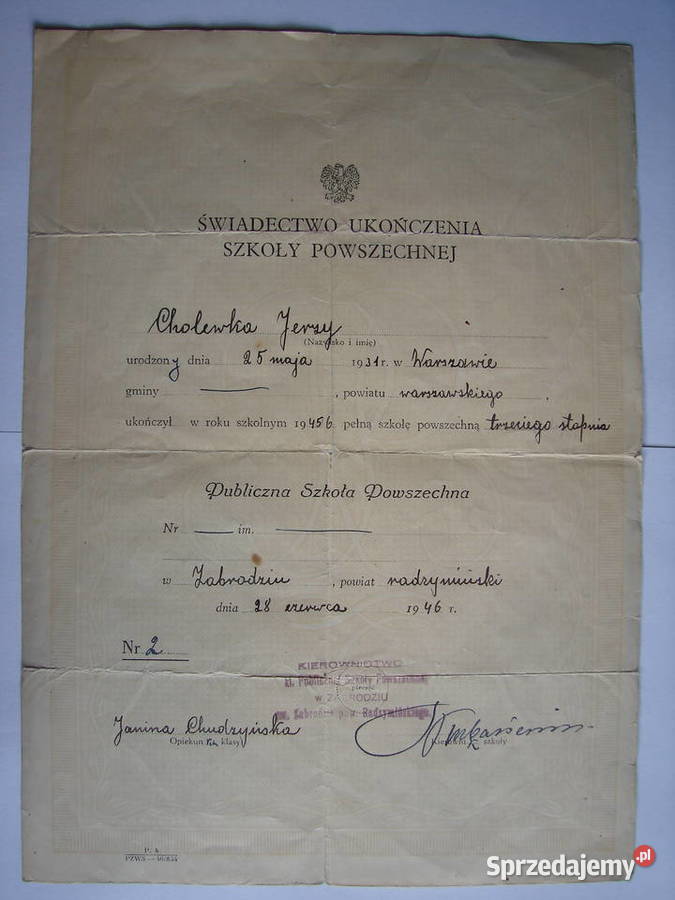 ŚWIADECTWO UKOŃCZENIA
SZKOŁY POWSZECHNEJ
Cholewka Jerzy
(Nazwisko i imię)
urodzony dnia 25 maja 1931 r. w Warszawie
gminy , powiatu warszawskiego
ukończył w roku szkolnym 1945/6 pełną szkołę powszechną trzeciego stopnia
Publiczna Szkoła Powszechna
Nr im.
w Zabrodziu , powiat radzymiński
dnia 28 czerwca 1946 r.
Nr 2
KIEROWNICTWO
kl. Publicznej Szkoły Powszechnej
pieczęć
w ZABRODZIU
pow. Radzymińskiego
Janina Chudzyńska
Opiekun klasy
Kierownik szkoły
P. 4
PZWS
Sprzedajemy.pl